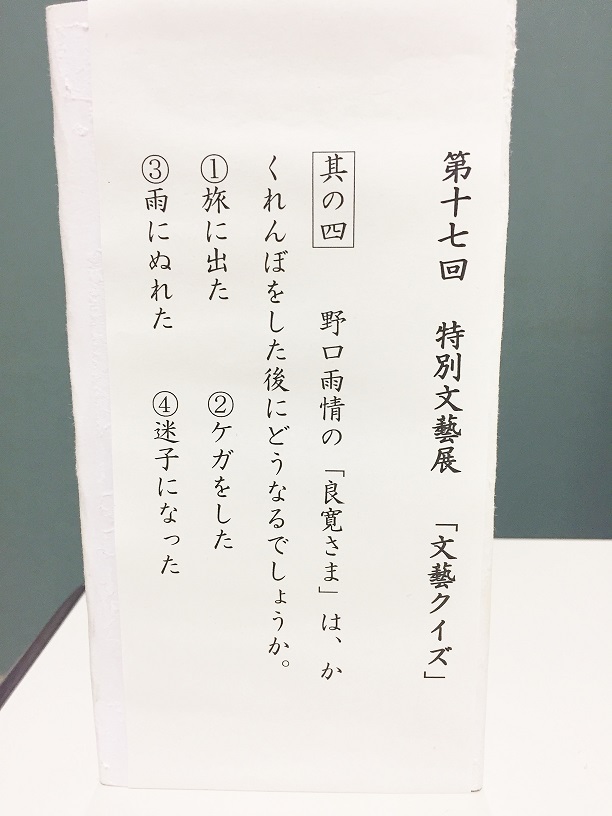 第十七回　特別文藝展　「文藝クイズ」
其の四　野口雨情の「良寛さま」は、か
くれんぼをした後にどうなるでしょうか。
①旅に出た　②ケガをした
③雨にぬれた　④迷子になった